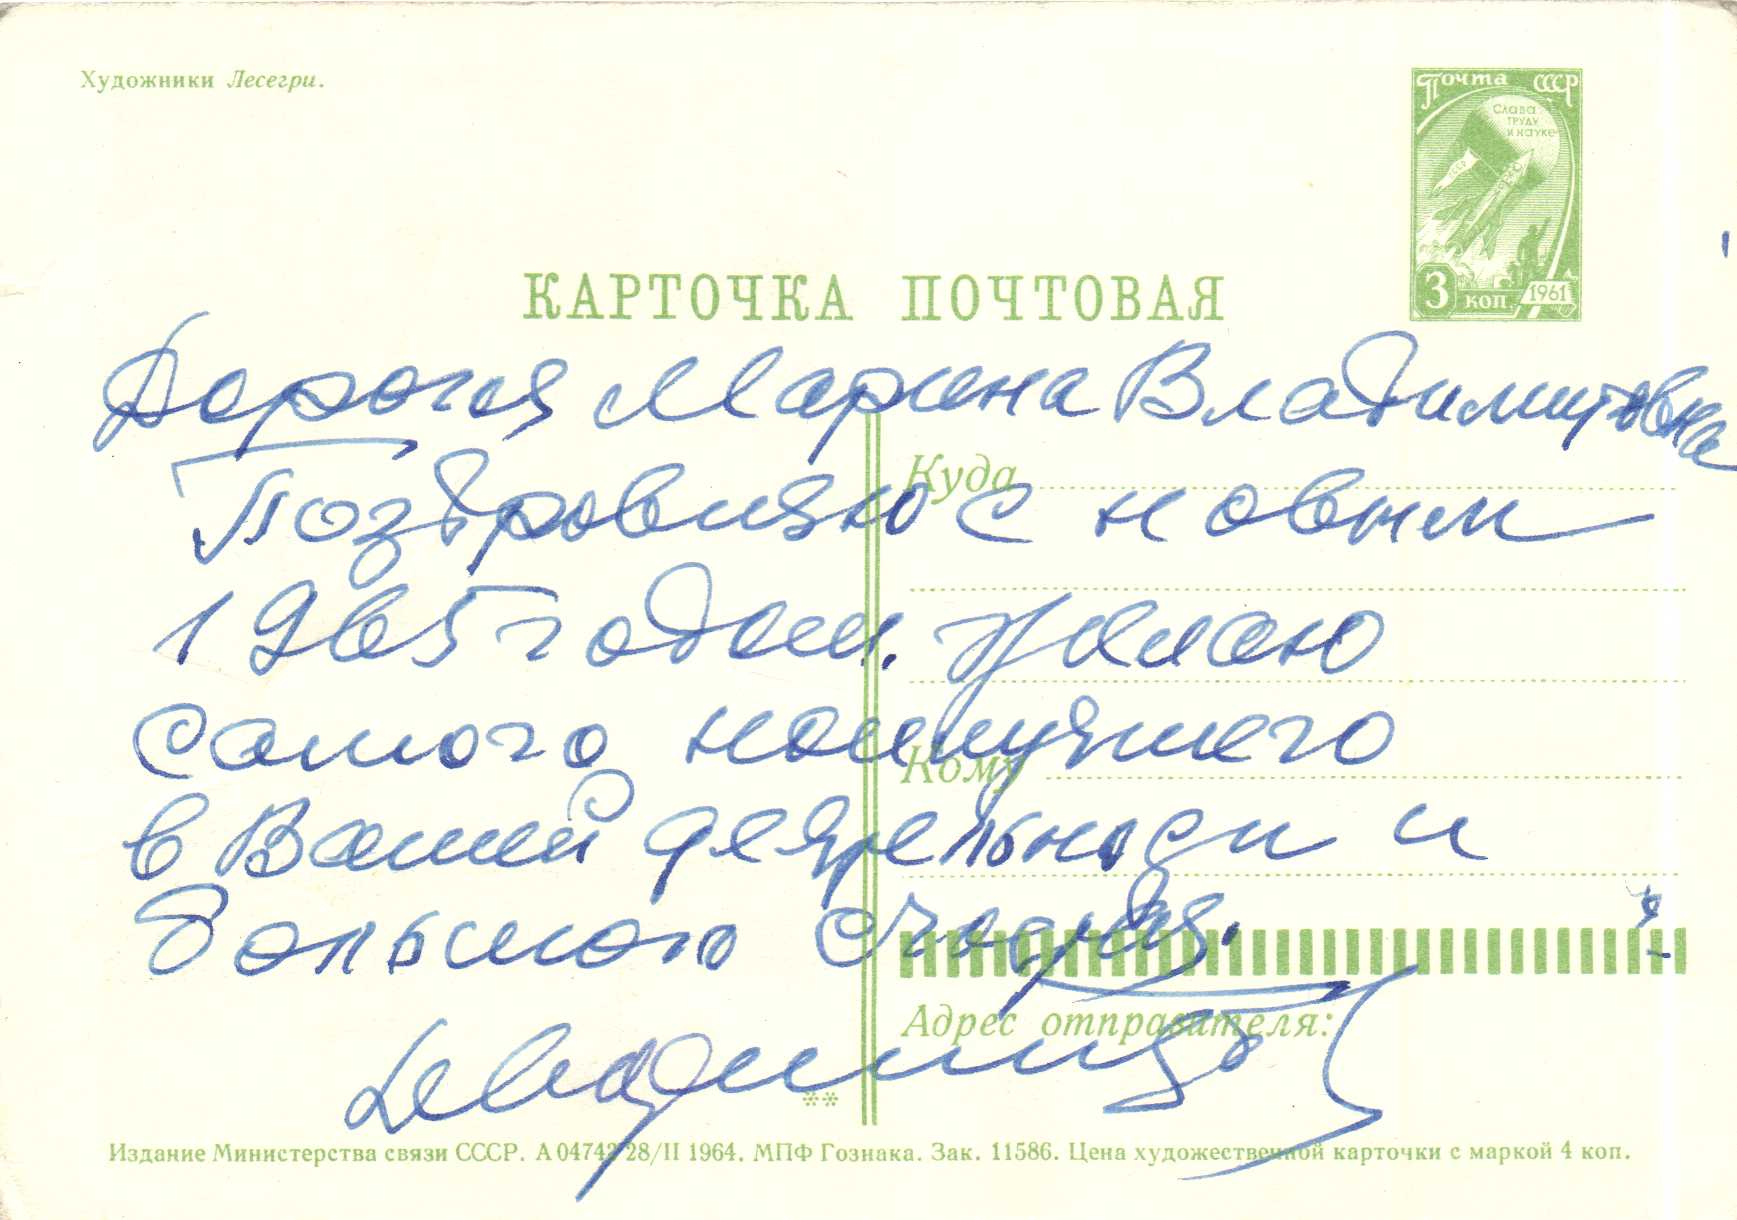 Художники Лесегри.
Почта СССР
Слава
труду
и науке
3 коп 1961
КАРТОЧКА ПОЧТОВАЯ
Дорогая Марина Владимировна
Куда
Поздравляю с новым
1965 годом. Желаю
самого наилучшего
Кому
в Вашей деятельности и
большого счастья.
Адрес отправителя:
**
Издание Министерства связи СССР. А 04742 28/II 1964. МПФ Гознака. Зак. 11586. Цена художественной карточки с маркой 4 коп.